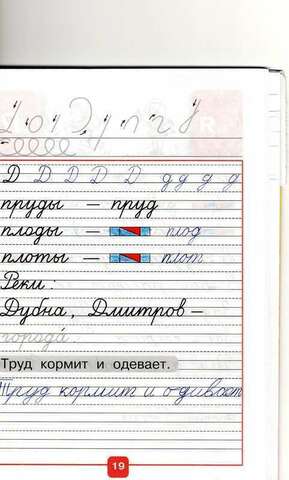 Д Д Д Д Д д д д д
пруды — пруд
плоды — плод
плоты — плот
Реки:
Дубна, Дмитров —
города.
Труд кормит и одевает.
Труд кормит и одивает
19